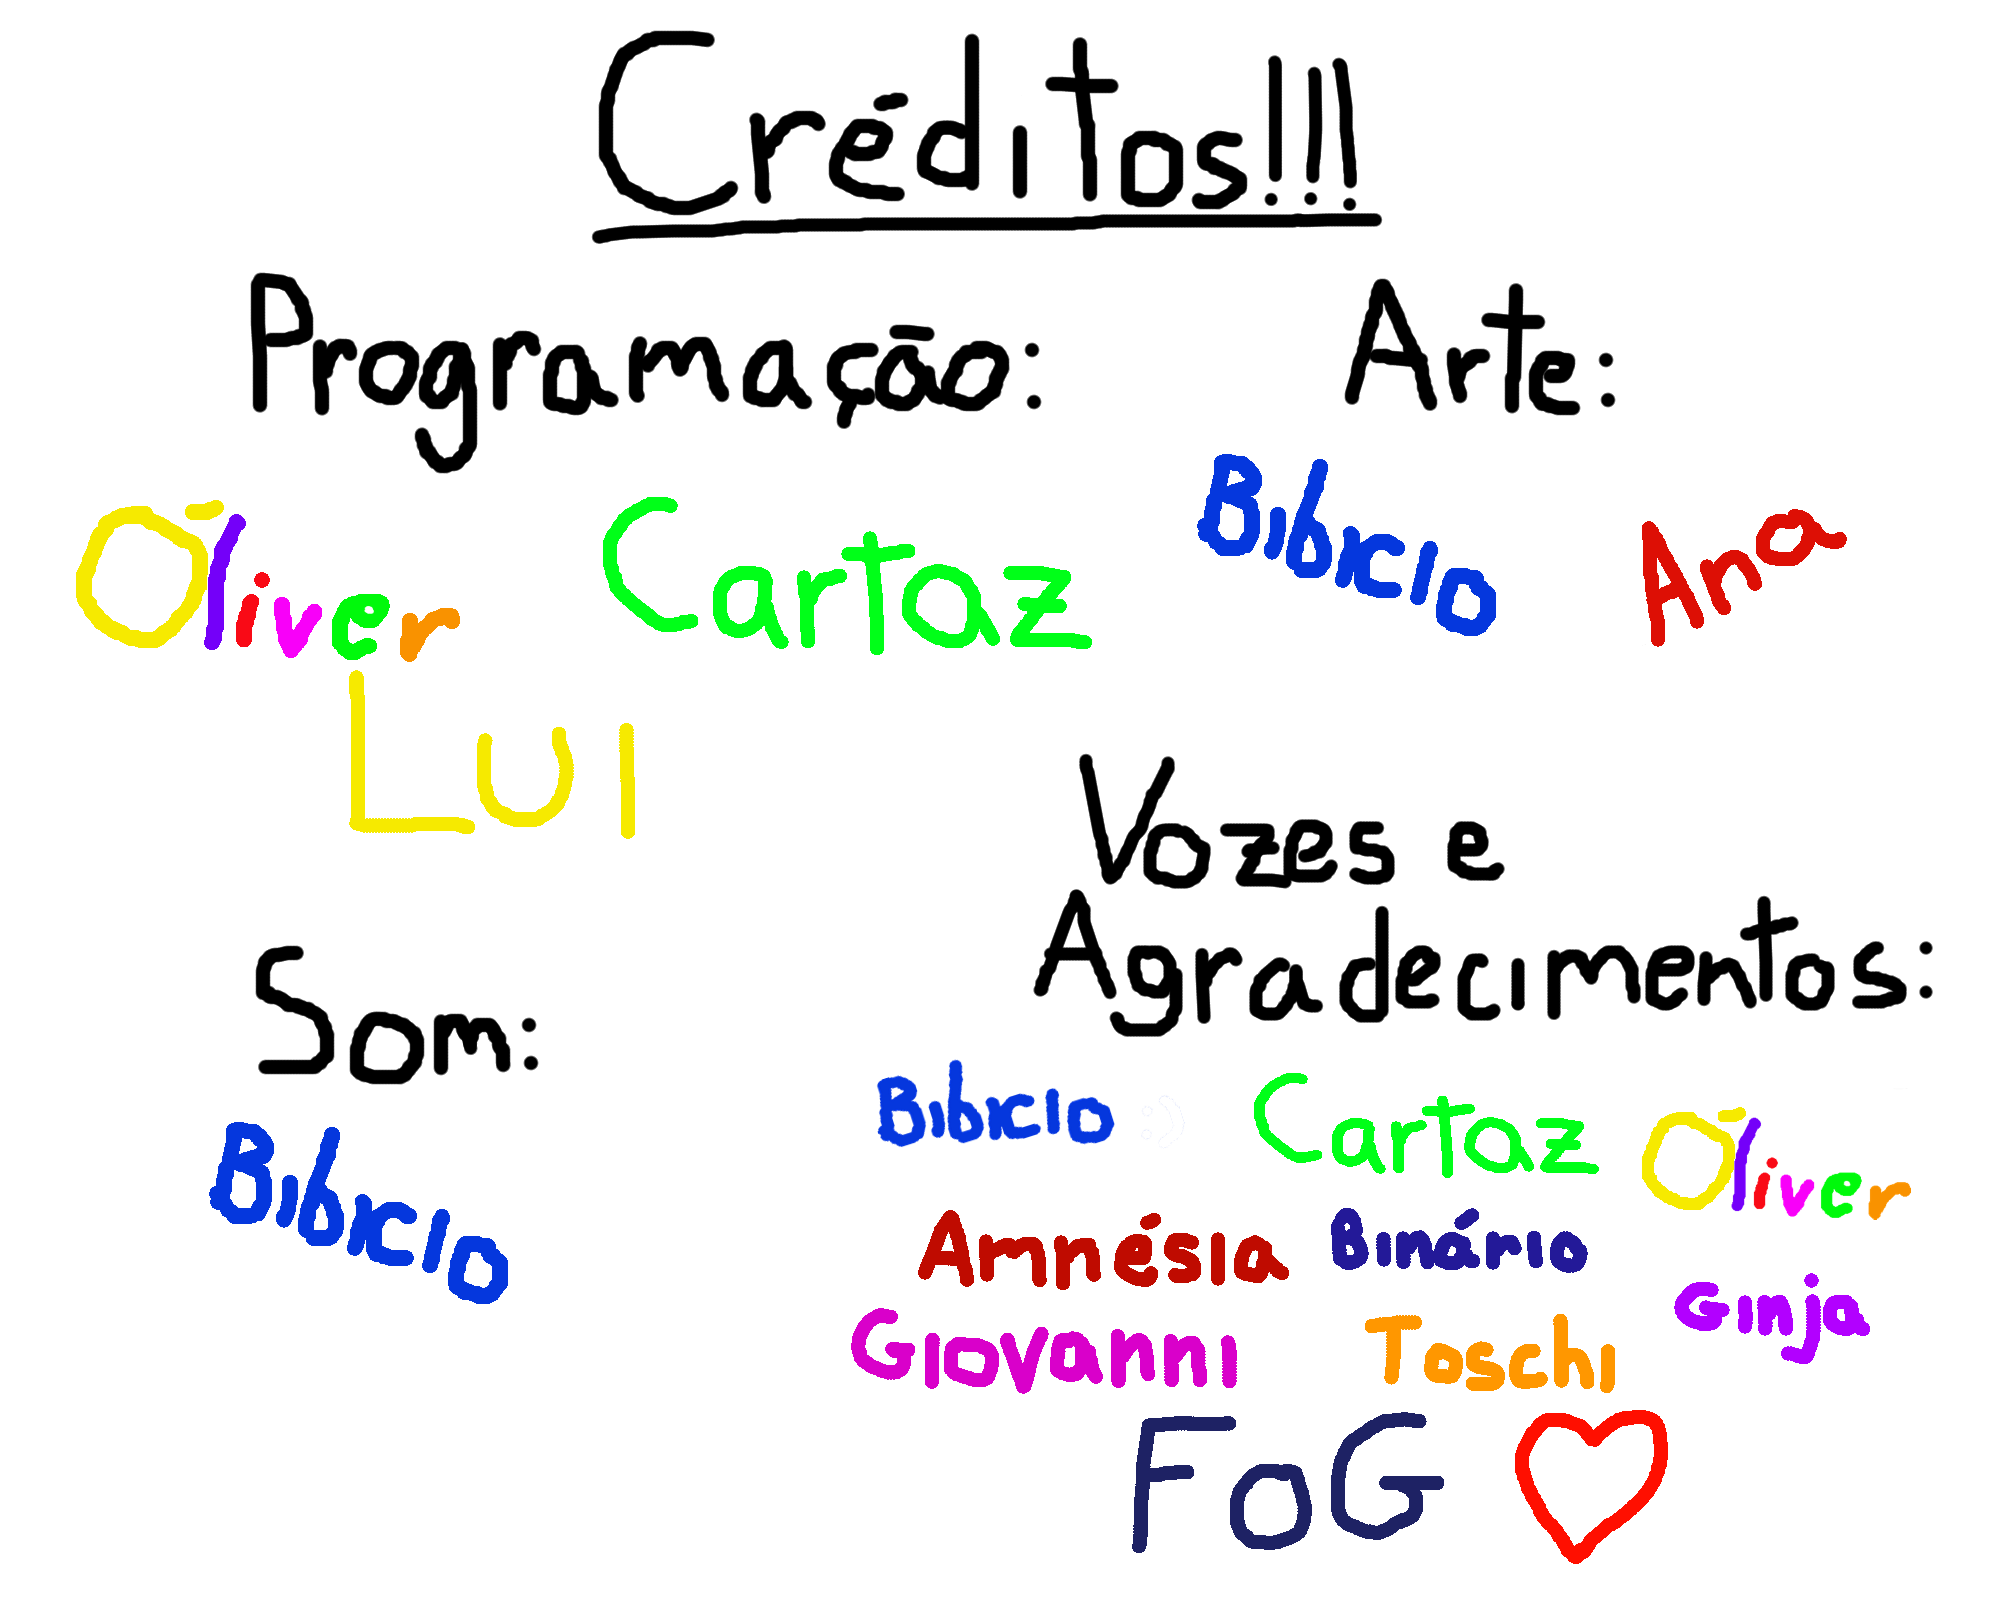 Créditos!!!
Programação:
Óliver Cartaz
Lui
Arte:
Bibicio Ana
Som:
Bibicio
Vozes e
Agradecimentos:
Bibicio :) Cartaz Óliver
Amnésia Binário
Ginja
Giovanni Toschi
FoG ♡